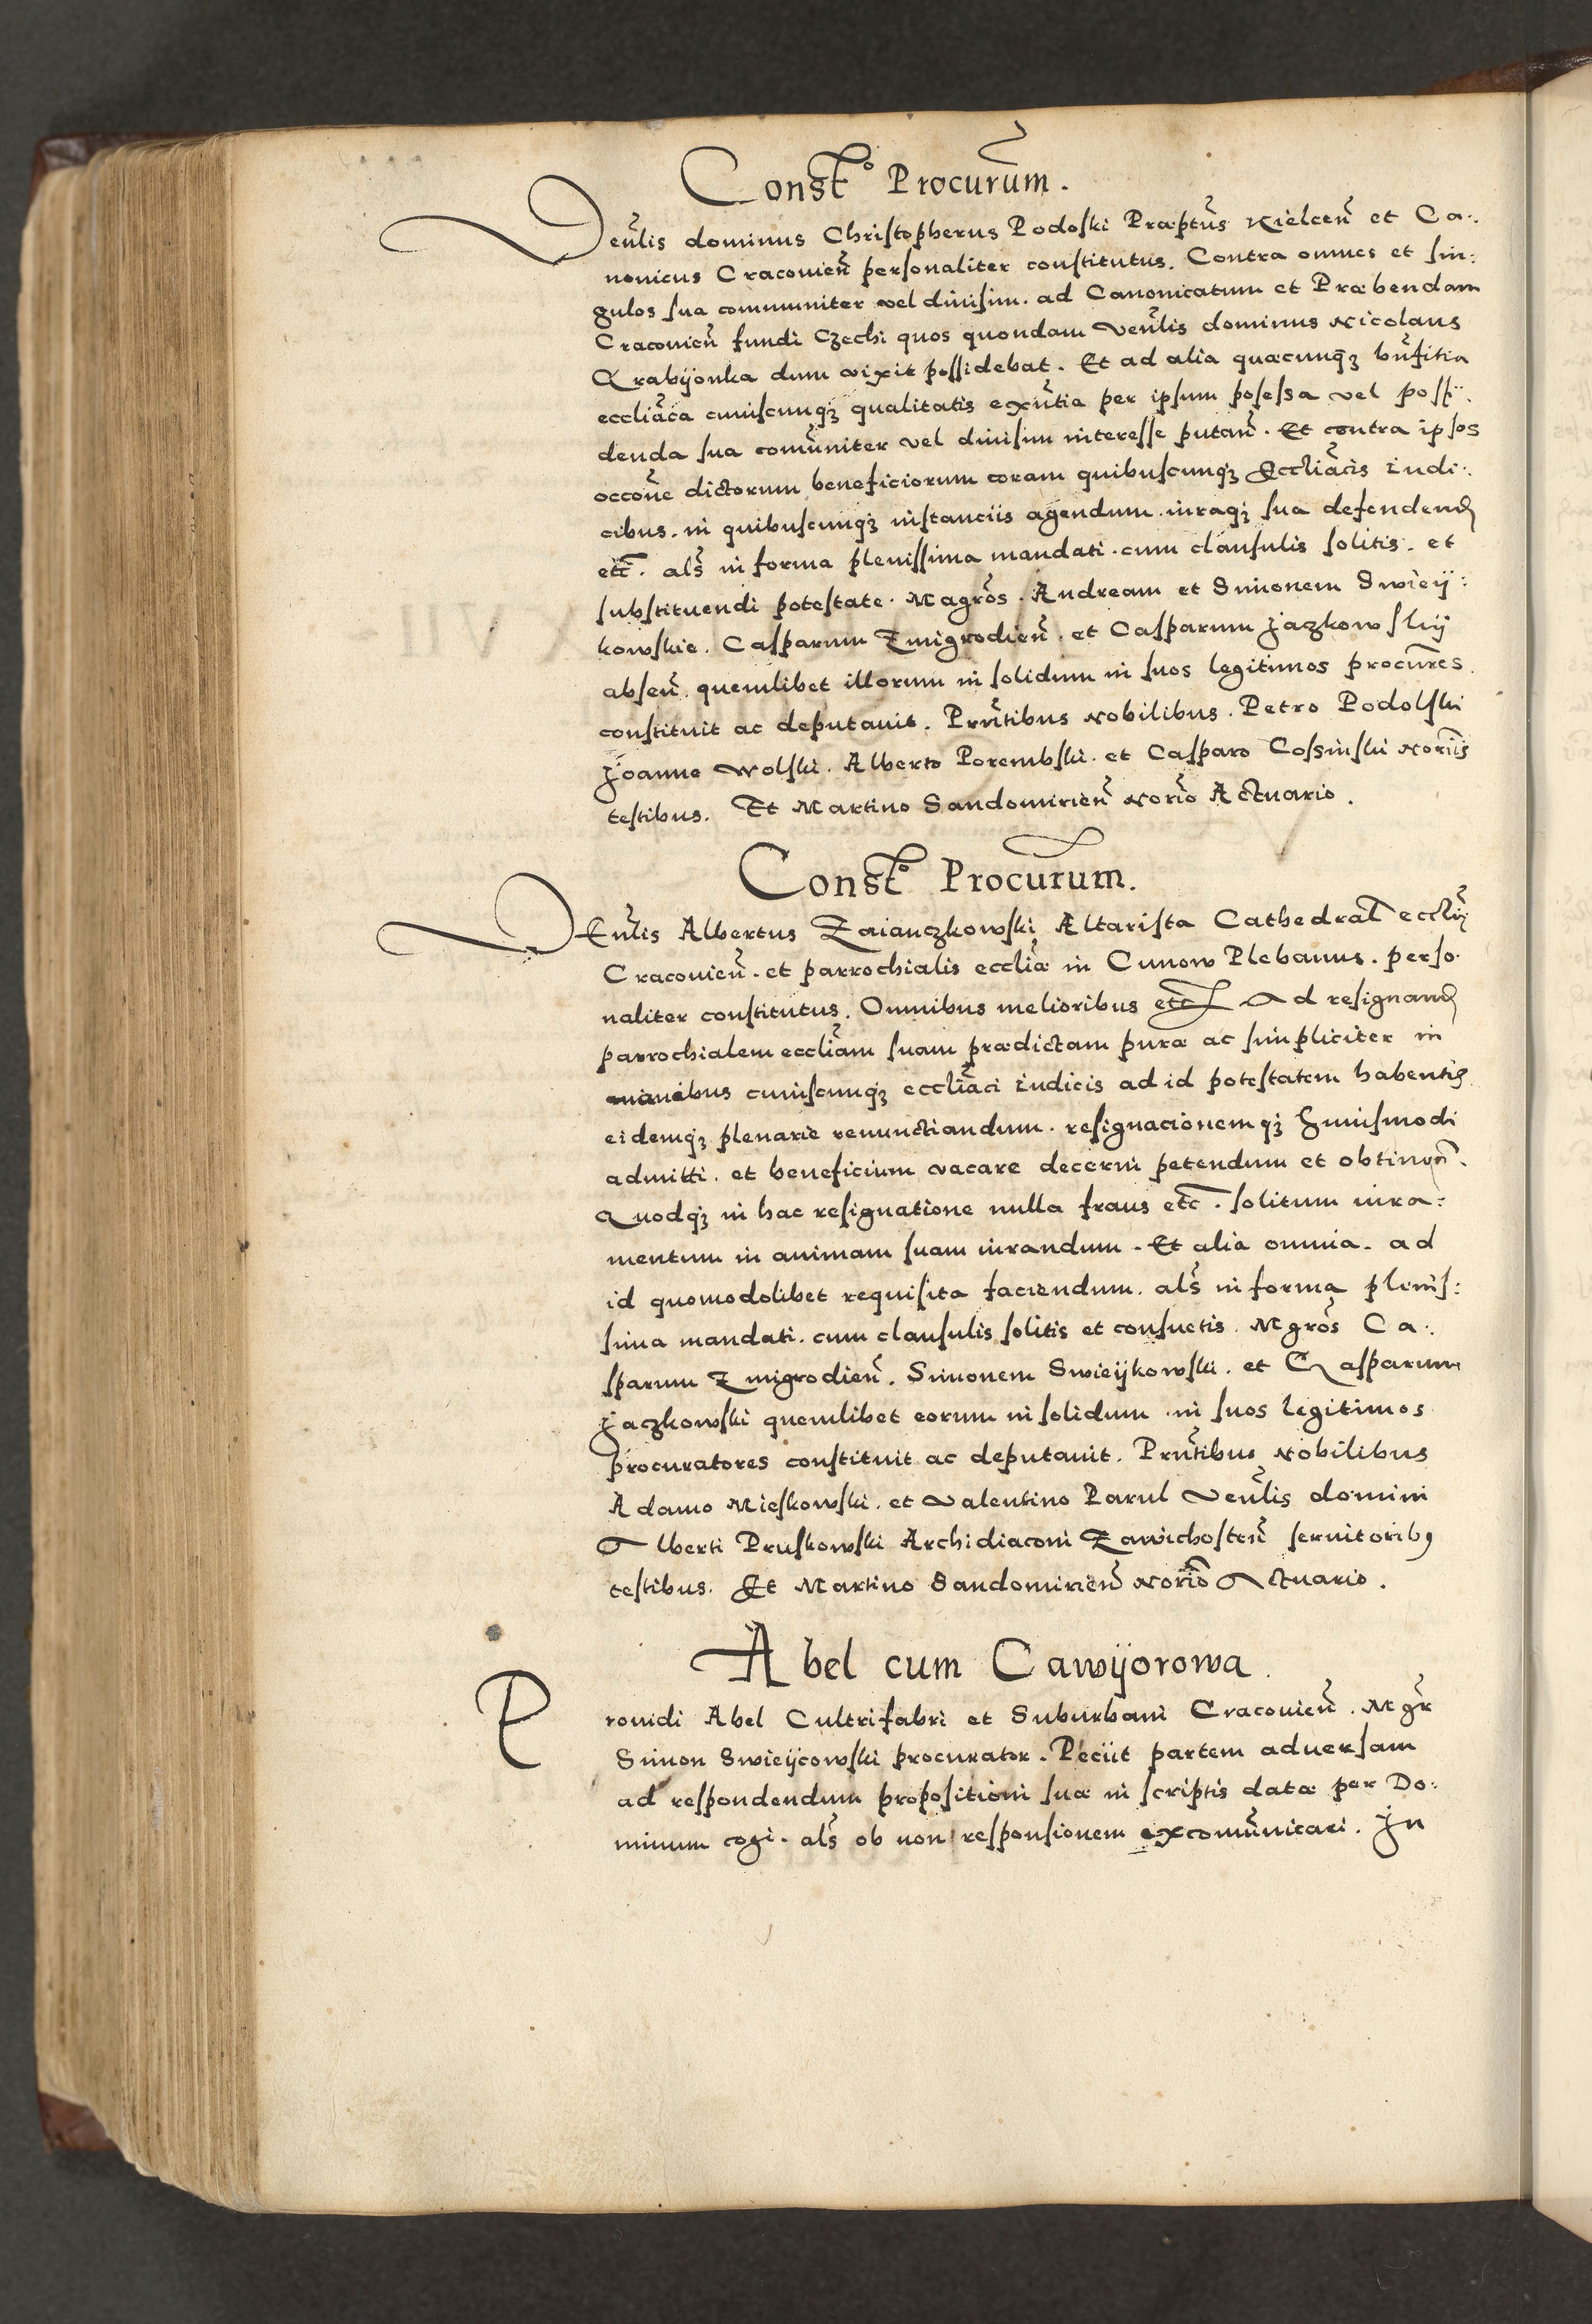 Constᵒ Procurum.
Venlis dominus Christopherus Podoski Præptus Kielcen et Ca-
nonicus Cracovien personaliter constitutus. Contra omnes et sin:
gulos sua communiter vel divisim. ad Canonicatum et Præbendam
Cracovien fundi Czechi quos quondam Venlis dominus Nicolaus
dum vixit possidebat. Et ad alia quæcunqꝫ bnfitia
eccliaca cuiuscunqꝫ qualitatis exntia per ipsum posessa vel possi-
denda sua comuniter vel divisim interesse putan. Et contra ipsos
occone dictorum beneficiorum coram quibuscunqꝫ Eccliacis iudi-
cibus. in quibuscunqꝫ instanciis agendum. iuraqꝫ sua defendend
etc. als in forma plenissima mandati. cum clausulis solitis. et
substituendi potestate. Magros. Andream et Simonem Swieÿ:
kowskie. Casparum Zmigrodien. et Casparum Jaczkowskij
absen. quemlibet illorum in solidum in suos legitimos procures
constituit ac deputavit. Prntibus Nobilibus. Petro Podolski
Joanne Wolski. Alberto Porembski. et Casparo Cossinski Noriis
testibus. Et Martino Sandomirien Norio Actuario.
Constᵒ Procurum.
VEnlis Albertus Zaianczkowski Altarista Cathedral eccliæ
Cracovien. et parrochialis eccliæ in Cunow Plebanus. perso-
naliter constitutus. Omnibus melioribus etc Ad resignand
parrochialem eccliam suam prædictam pure ac simpliciter in
manibus cuiuscunqꝫ eccliaci iudicis ad id potestatem habentis
eidemqꝫ plenarie renunctiandum. resignacionemqꝫ huiusmodi
admitti. et beneficium vacare decerni petendum et obtinen.
Quodqꝫ in hac resignatione nulla fraus etc. solitum iura:
mentum in animam suam iurandum. Et alia omnia. ad
id quomodolibet requisita faciendum. als in forma plenis:
sima mandati. cum clausulis solitis et consuetis. Mgros Ca-
sparum Zmigrodien. Simonem Swieijkowski. et Casparum
Jaczkowski quemlibet eorum in solidum in suos legitimos
procuratores constituit ac deputavit. Prntibus Nobilibus
Adamo Mieskowski. et Valentino Parul Venlis domini
Alberti Pruskowski Archidiaconi Zawichosten servitoribꝰ
testibus. Et Martino Sandomirien Norio Actuario.
Abel cum Cawijorowa.
Providi Abel Cultrifabri et Suburbani Cracovien. Mgr
Simon Swieijcowski procurator. Peciit partem adversam
ad respondendum propositioni suæ in scriptis datæ per Do-
minum cogi. als ob non responsionem excomunicari. In